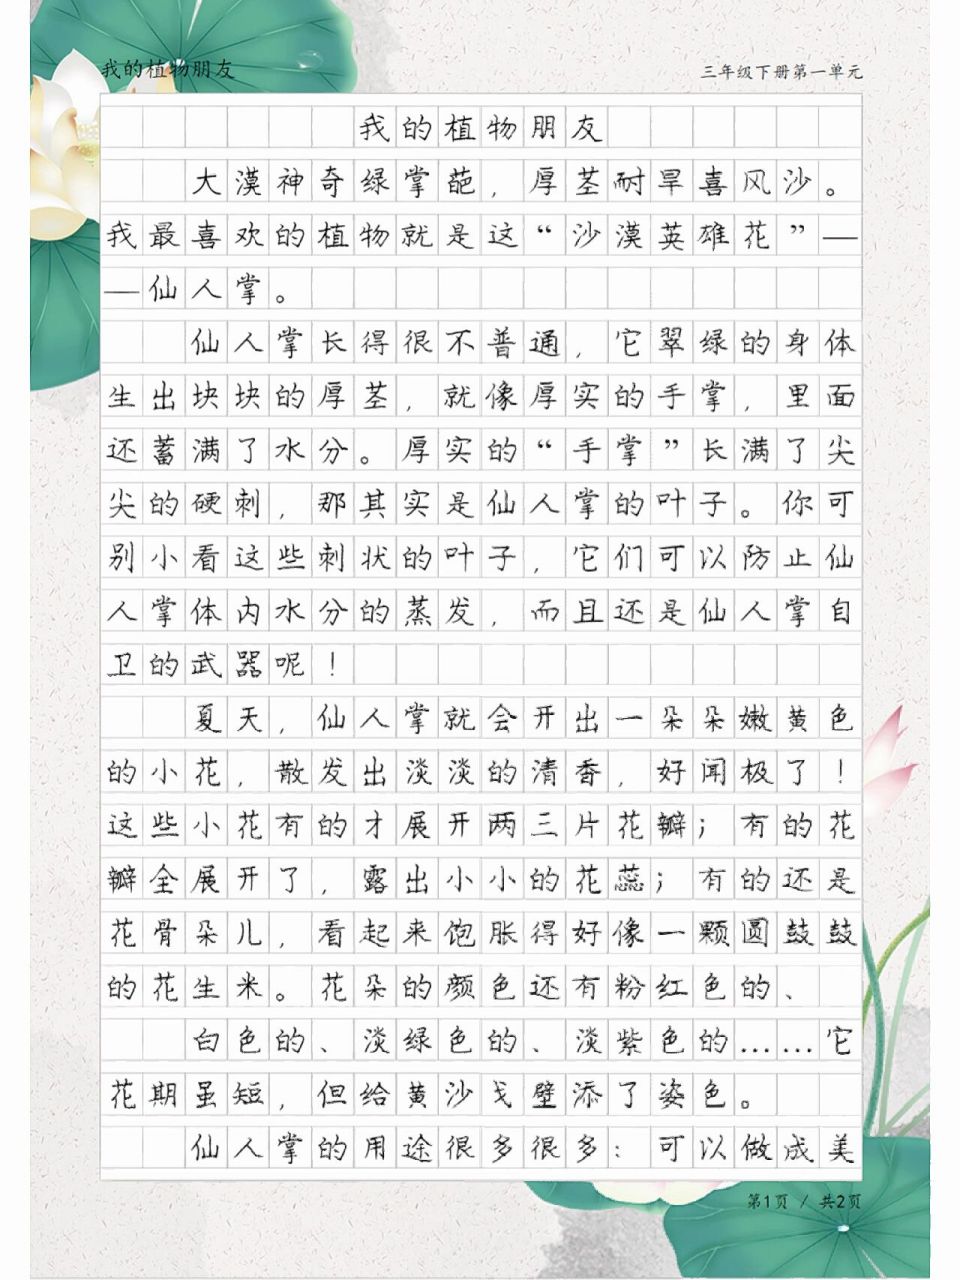 我的植物朋友
三年级下册第一单元
我的植物朋友
大漠神奇绿掌葩，厚茎耐旱喜风沙。
我最喜欢的植物就是这“沙漠英雄花”—
—仙人掌。
仙人掌长得很不普通，它翠绿的身体
生出块块的厚茎，就像厚实的手掌，里面
还蓄满了水分。厚实的“手掌”长满了尖
尖的硬刺，那其实是仙人掌的叶子。你可
别小看这些刺状的叶子，它们可以防止仙
人掌体内水分的蒸发，而且还是仙人掌自
卫的武器呢！
夏天，仙人掌就会开出一朵朵嫩黄色
的小花，散发出淡淡的清香，好闻极了！
这些小花有的才展开两三片花瓣；有的花
瓣全展开了，露出小小的花蕊；有的还是
花骨朵儿，看起来饱胀得好像一颗圆鼓鼓
的花生米。花朵的颜色还有粉红色的、
白色的、淡绿色的、淡紫色的……它
花期虽短，但给黄沙戈壁添了姿色。
仙人掌的用途很多很多：可以做成美
第1页 / 共2页